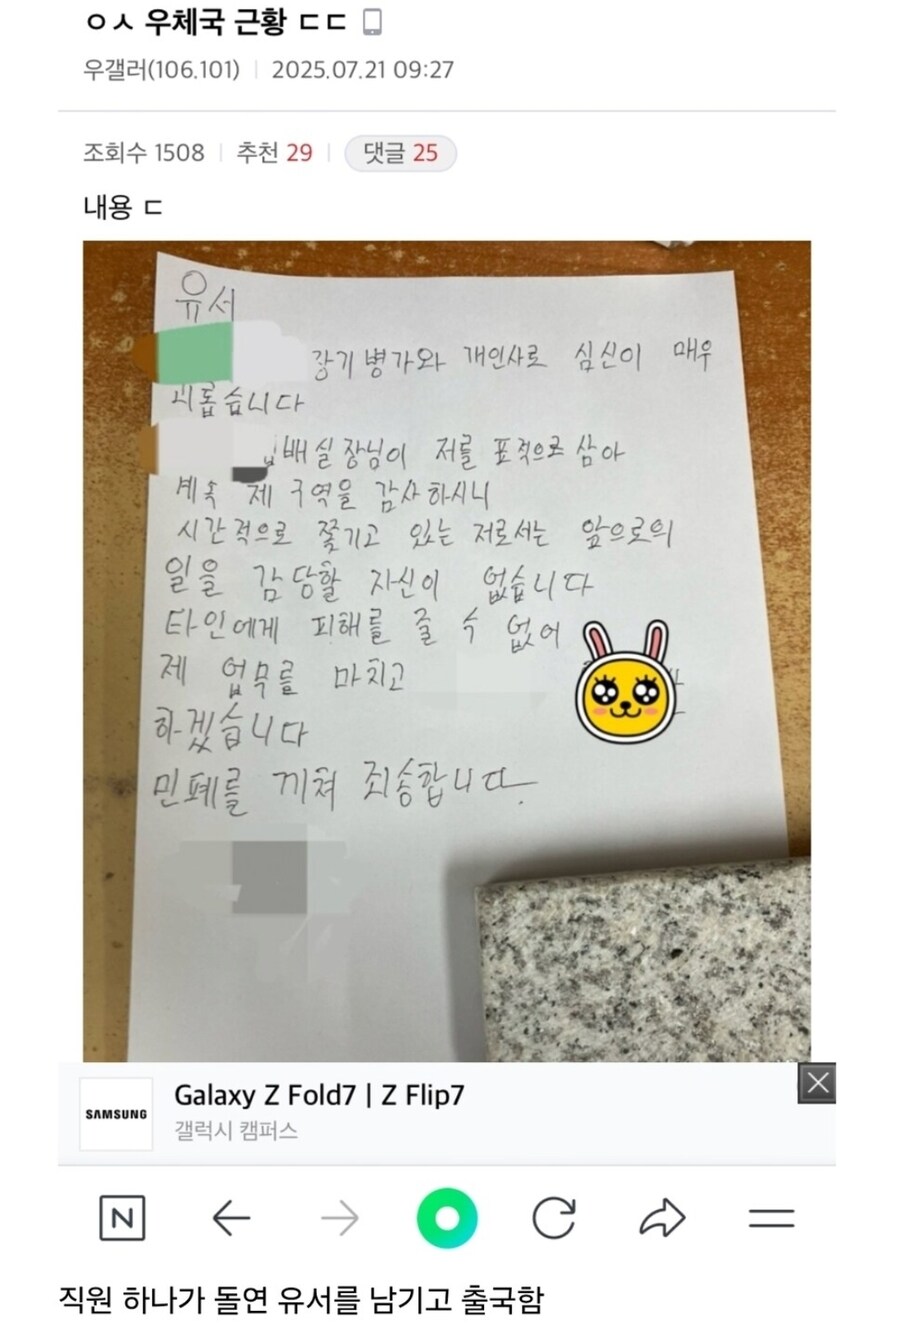 ㅇㅅ 우체국 근황 ㄷㄷ
우갤러(106.101) 2025.07.21 09:27
조회수 1508 추천 29 댓글 25
내용 ㄷ
유서
장기병가와 개인사로 심신이 매우
괴롭습니다
집배실장님이 저를 표적으로 삼아
계속 제 구역을 감사하시니
시간적으로 쫓기고 있는 저로서는 앞으로의
일을 감당할 자신이 없습니다
타인에게 피해를 줄 수 없어
제 업무를 마치고
하겠습니다
민폐를 끼쳐 죄송합니다.
SAMSUNG
Galaxy Z Fold7 | Z Flip7
갤럭시 캠퍼스
N
직원 하나가 돌연 유서를 남기고 출국함